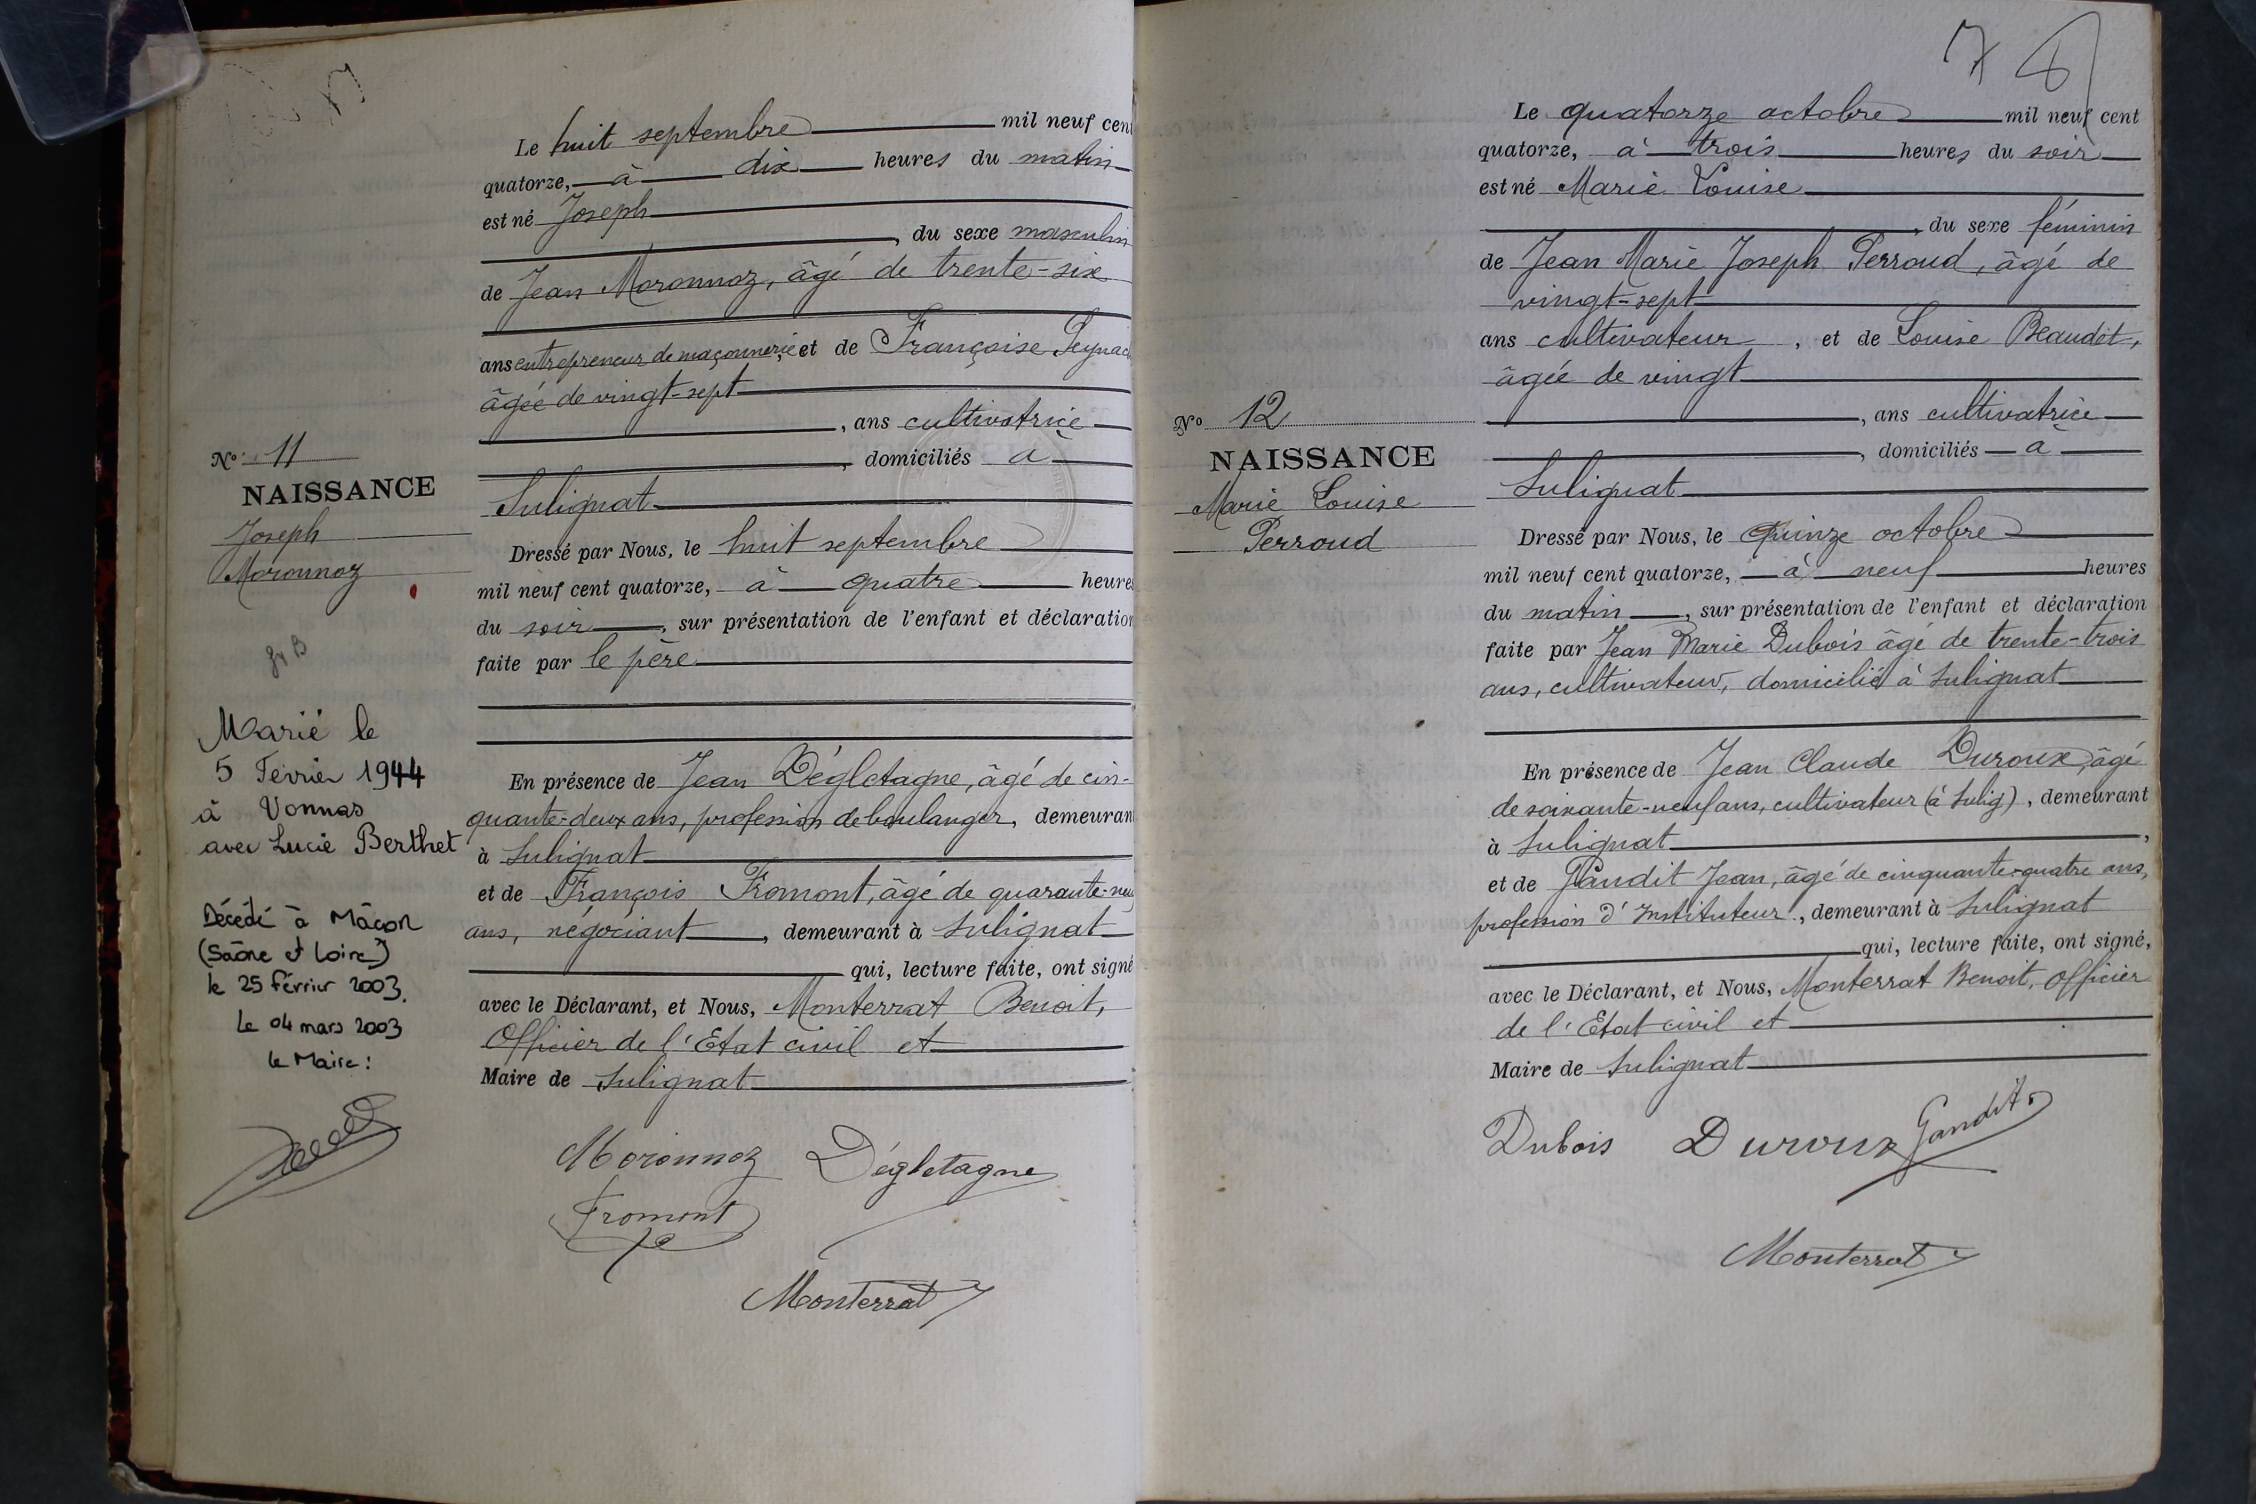 Le huit septembre mil neuf cent
quatorze, à dix heures du matin
est né Joseph
, du sexe masculin
de Jean Moronnoz, âgé de trente-six
ans entrepreneur de maçonnerie, et de Françoise
âgée de vingt-sept
, ans cultivatrice
, domiciliés à
Sulignat
Dressé par Nous, le huit septembre
mil neuf cent quatorze, à quatre heures
du soir, sur présentation de l'enfant et déclaration
faite par le père
En présence de Jean Dégletagne, âgé de cin-
quante-deux ans, profession de boulanger, demeurant
à Sulignat
et de François Fromont, âgé de quarante-neuf
ans, négociant, demeurant à Sulignat
qui, lecture faite, ont signé
avec le Déclarant, et Nous, Monterrat Benoit,
Officier de l'Etat civil et
Maire de Sulignat
Moronnoz Dégletagne
Fromont
Monterrat
No 11
NAISSANCE
Joseph
Moronnoz
Marié le
5 Février 1944
à Vonnas
avec Lucie Berthet
Décédé à Mâcon
(Saône et Loire)
le 25 février 2003.
Le 04 mars 2003
le Maire :
7
Le quatorze octobre mil neuf cent
quatorze, à trois heures du soir
est né Marie Louise
, du sexe féminin
de Jean Marie Joseph Perroud, âgé de
vingt-sept
ans cultivateur, et de Louise Beaudet,
âgée de vingt
, ans cultivatrice
, domiciliés à
Sulignat
Dressé par Nous, le Quinze octobre
mil neuf cent quatorze, à neuf heures
du matin, sur présentation de l'enfant et déclaration
faite par Jean Marie Dubois âgé de trente-trois
ans, cultivateur, domicilié à Sulignat
En présence de Jean Claude Duroux, âgé
de soixante-neuf ans, cultivateur (à Sulig), demeurant
à Sulignat,
et de Gandit Jean, âgé de cinquante-quatre ans,
profession d'Instituteur, demeurant à Sulignat
qui, lecture faite, ont signé,
avec le Déclarant, et Nous, Monterrat Benoit, Officier
de l'Etat civil et
Maire de Sulignat
Dubois Duroux Gandit
Monterrat
No 12
NAISSANCE
Marie Louise
Perroud